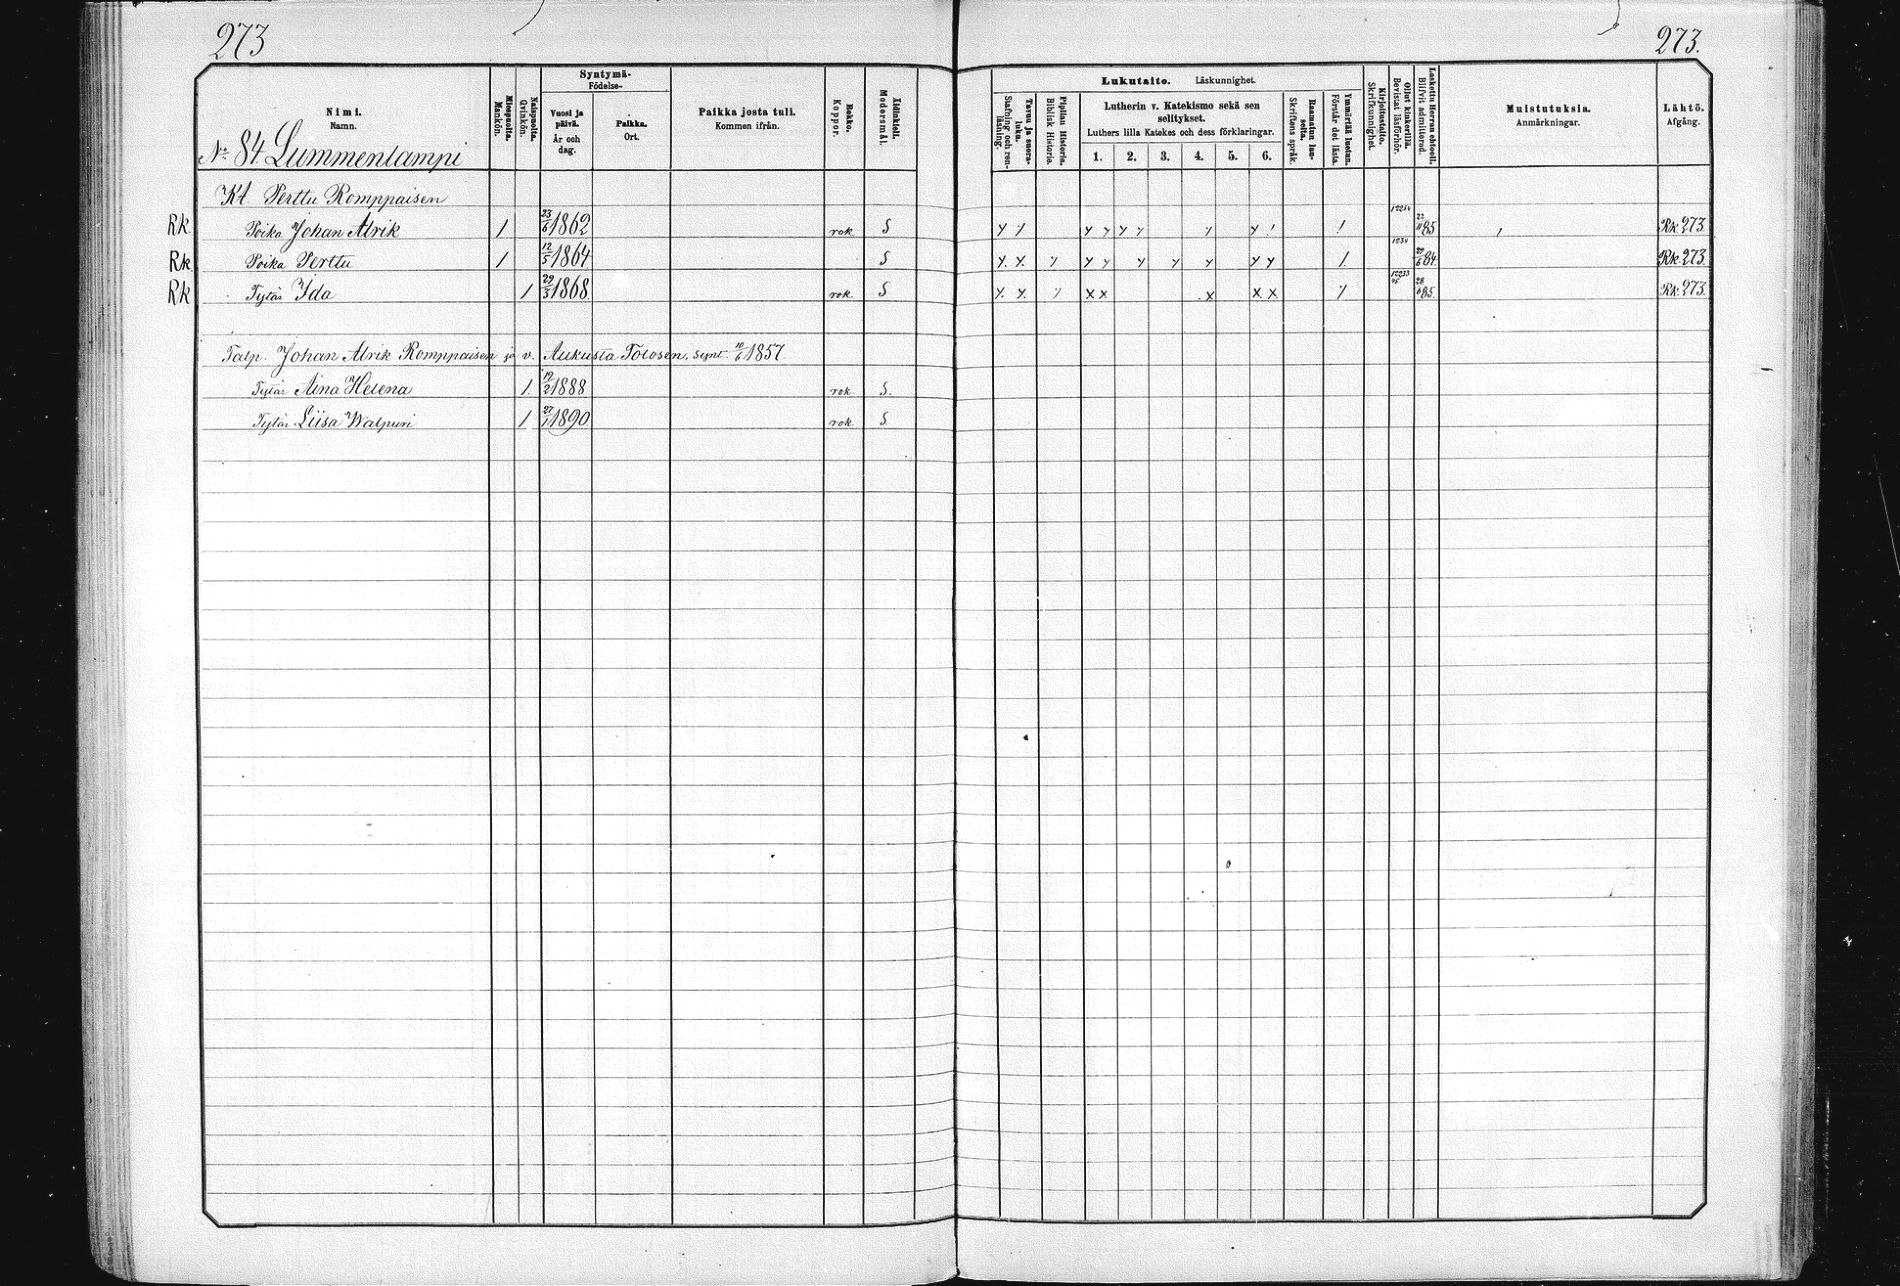 273
273.
Syntymä-
Födelse-
Nimi.
Namn.
Miespuolta.
Mankön.
Naispuolta.
Qvinkön.
Vuosi ja päivä.
År och dag.
Paikka.
Ort.
Paikka josta tuli.
Kommen ifrån.
Rokko.
Koppor.
Äidinkieli.
Modersmål.
Lukutaito. Läskunnighet.
Tavuu ja suora-luku.
Stafning och ren-läsning.
Piplian Historia.
Biblisk Historia.
Lutherin v. Katekismo sekä sen selitykset.
Luthers lilla Katekes och dess förklaringar.
1. 2. 3. 4. 5. 6.
Raamatun lau-seita.
Skriftens språk.
Ymmärtää luetun.
Förstår det lästa.
Kirjoitustaito.
Skrifkunnighet.
Ollut kinkerillä.
Bevistat läsförhör.
Laskettu Herran ehtooll.
Blifvit admitterad.
Muistutuksia.
Anmärkningar.
Lähtö.
Afgång.
No 84 Lummenlampi
Kt. Perttu Romppaisen
Rk Poika Johan Alrik 1 23/6 1862 rok S 22/11 85 Rk 273
Rk Poika Perttu 1 12/5 1864 S 84. Rk 273
Rk Tytär Ida 1 29/3 1868 rok S 85. Rk. 273.
Talp. Johan Alrik Romppaisen ja v. Aukusta Tolosen, synt. 10/6 1857
Tytär Aina Helena 1. 19/2 1888 rok S.
Tytär Liisa Walpuri 1 27/1 1890 rok S